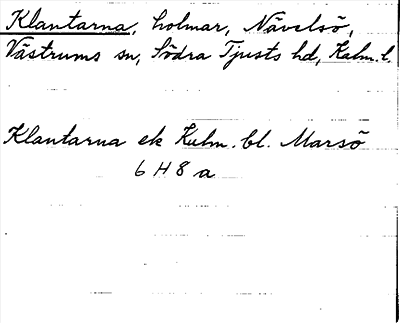 Klantarna, holmar, Nävelsö,
Västrums sn, Södra Tjusts hd, Kalm. l.
Klantarna ek Kulm. bl. Marsö
6 H 8 a